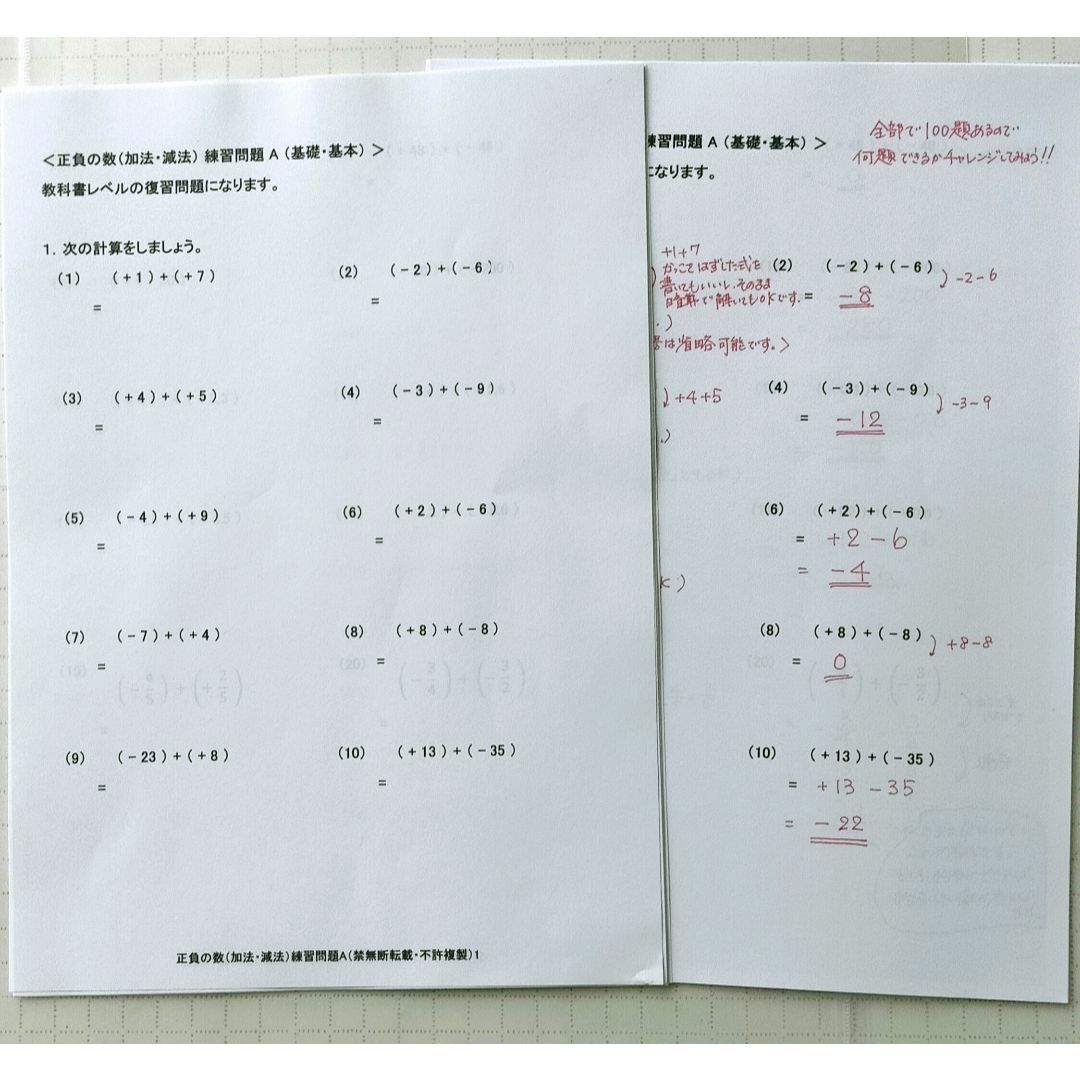 ＜正負の数（加法・減法） 練習問題 A （基礎・基本）＞
教科書レベルの復習問題になります。
１．次の計算をしましょう。
(1) （＋1）＋（＋7）
=
(2) （－2）＋（－6）
=
(3) （＋4）＋（＋5）
=
(4) （－3）＋（－9）
=
(5) （－4）＋（＋9）
=
(6) （＋2）＋（－6）
=
(7) （－7）＋（＋4）
=
(8) （＋8）＋（－8）
=
(9) （－23）＋（＋8）
=
(10) （＋13）＋（－35）
=
正負の数（加法・減法）練習問題A（禁無断転載・不許複製）1
練習問題 A （基礎・基本）＞
になります。
全部で100題あるので
何題できるかチャレンジしてみよう!!
+1+7
かっこではずした式を
書いてもいいし、そのまま
暗算で解いてもOKです.
は省略可能です。＞
(2) （－2）＋（－6）
= －8
-2-6
+4+5
(4) （－3）＋（－9）
= －12
-3-9
(6) （＋2）＋（－6）
= +2－6
= －4
(8) （＋8）＋（－8）
= 0
+8-8
(10) （＋13）＋（－35）
= +13 －35
= －22
(19) (－4/5)＋(＋2/5)
(20) (－3/4)＋(－3/2)
(20)